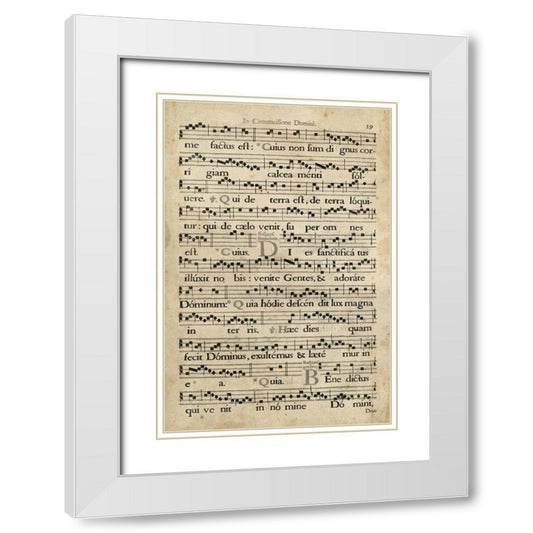 In Circumcisione Domini. 39
me factus est: * Cuius non sum di gnus cor-
ri giam calcea menti sol-
uere. ℣. Qui de terra est, de terra lóqui-
tur: qui de cælo venit, su per om nes
est. * Cuius. DI es sanctifica tus
illúxit no bis: venite Gentes, & adoráte
Dóminum: * Quia hódie descén dit lux magna
in ter ris. ℣. Hæc dies quam
fecit Dóminus, exultémus & læté mur in
e a. * Quia. BEne dictus
qui ve nit in nó mine Dó mini,